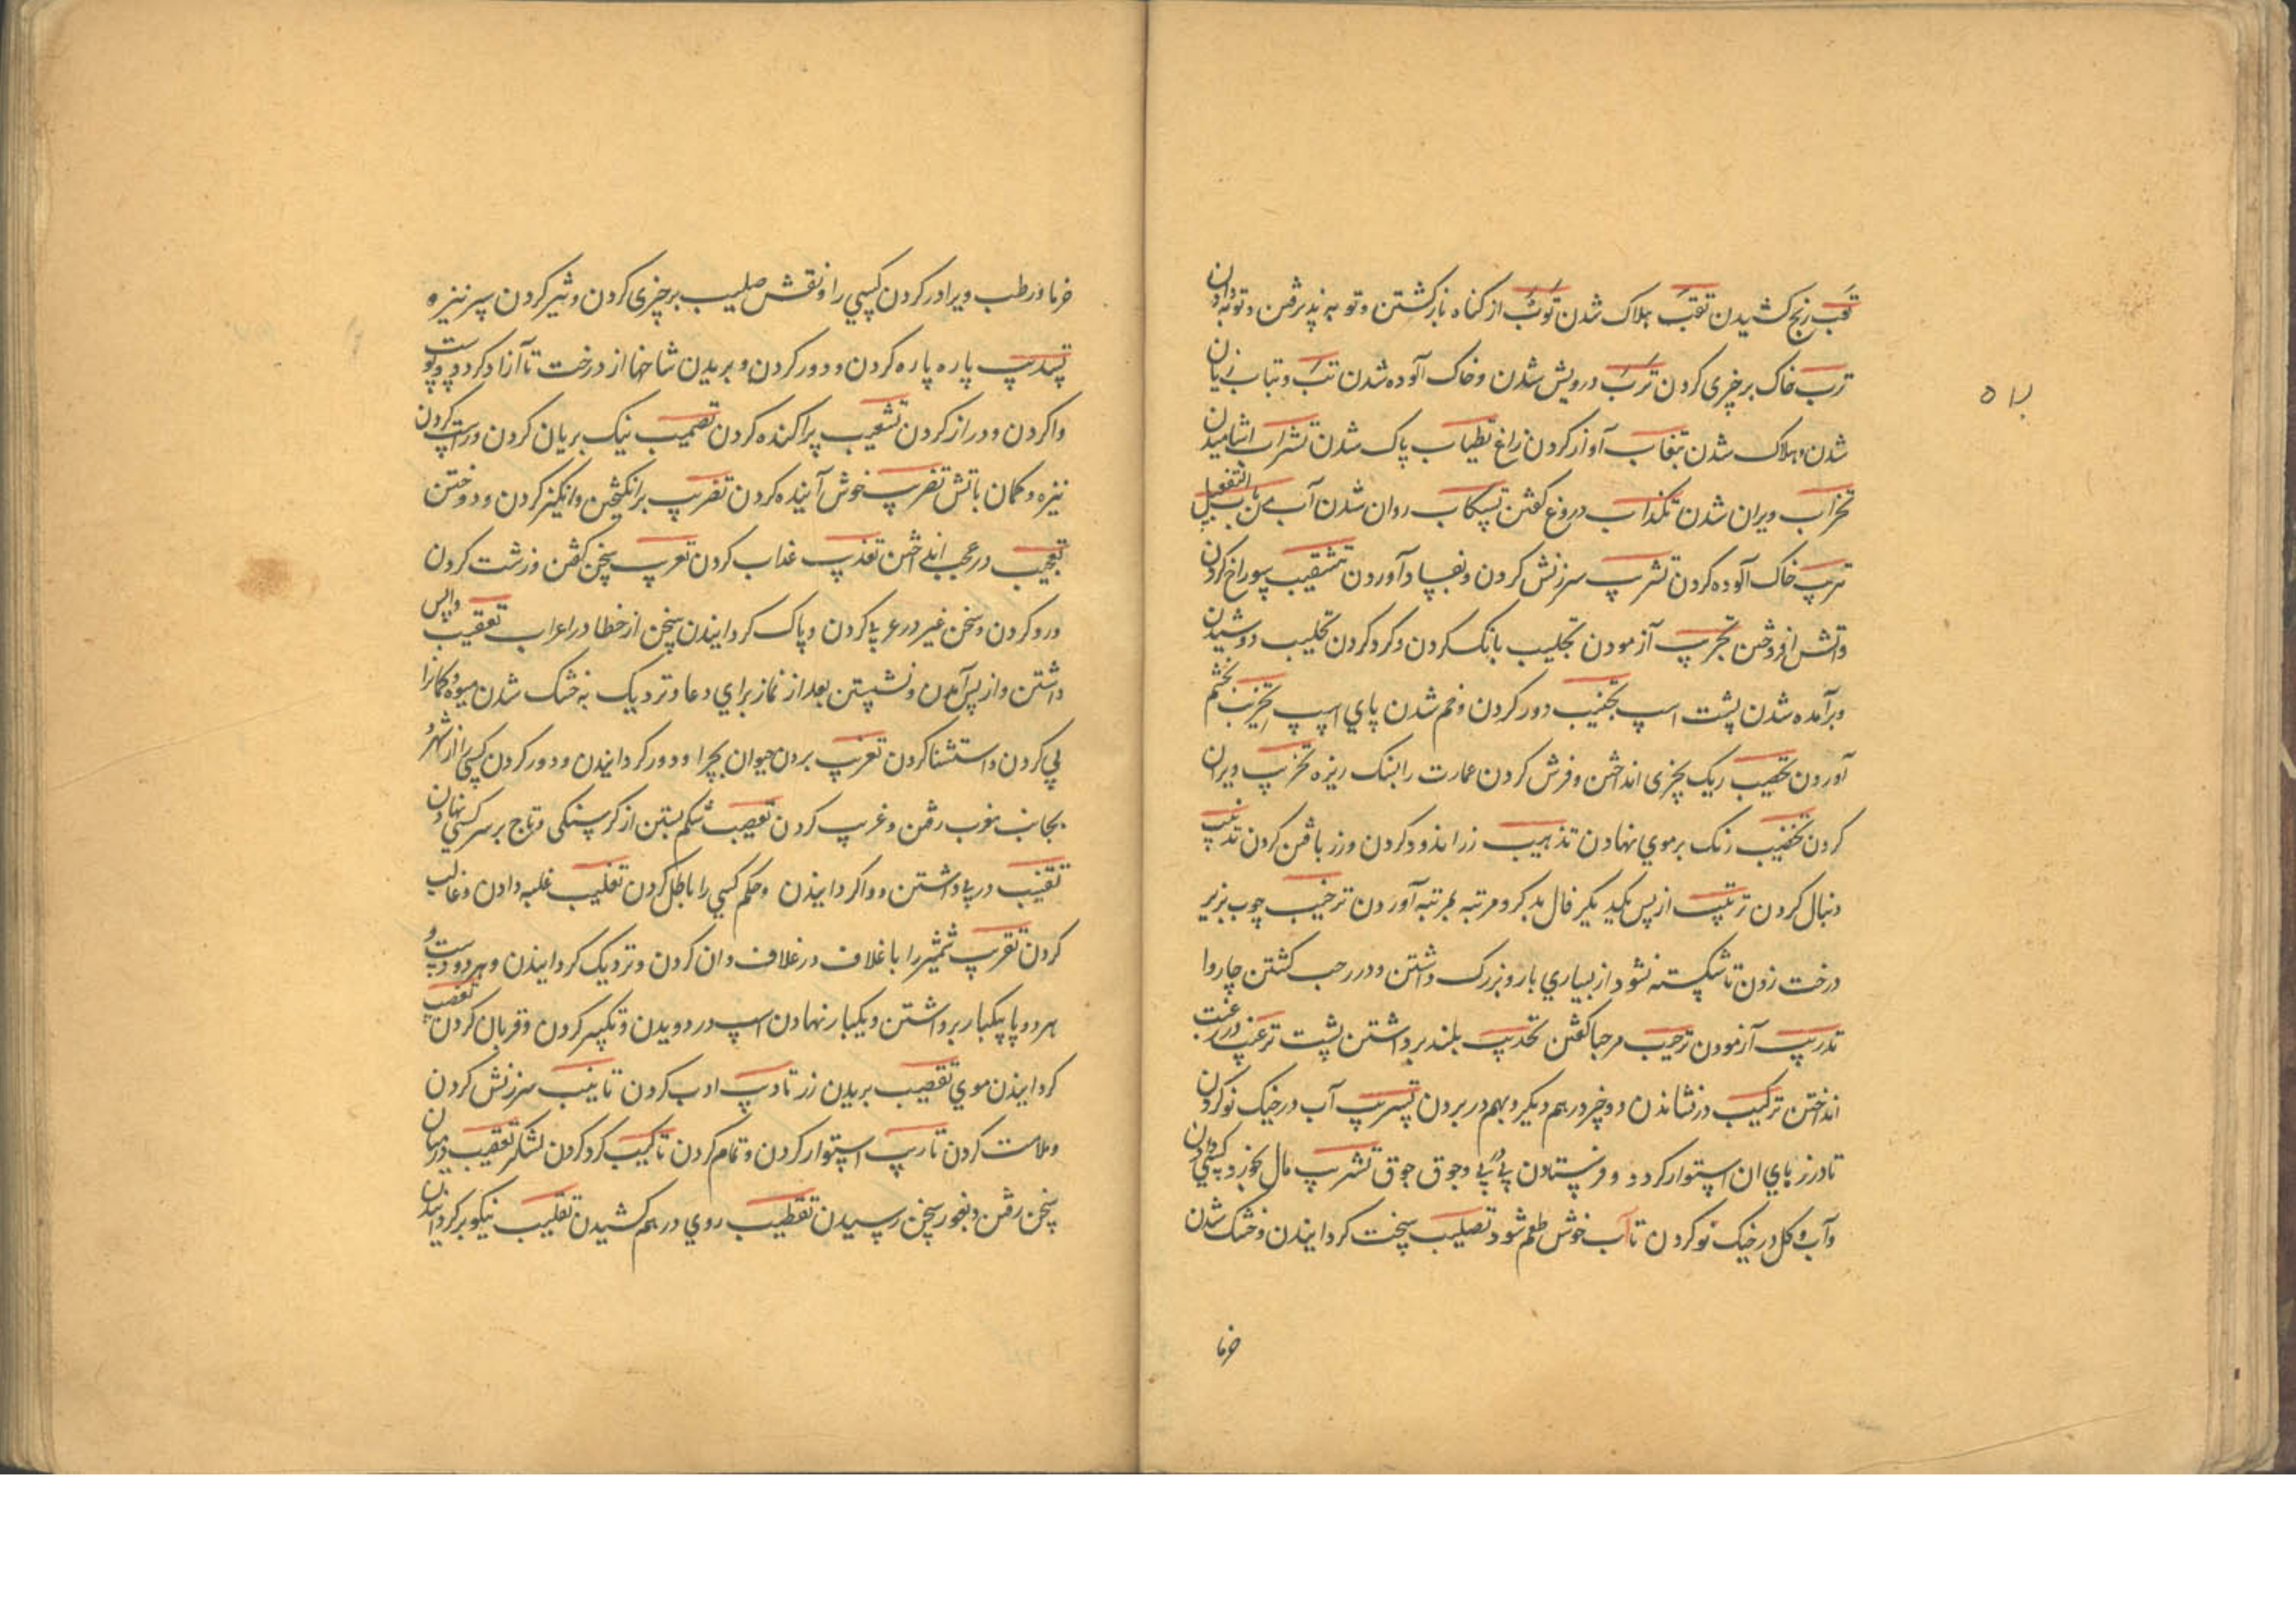 تعب رنج کشیدن تغب هلاک شدن توب از کناه بازکشتن و توبه پذیرفتن و توبه دادن
ترب خاک برچیزی کردن ترب درویش شدن و خاک آلوده شدن تب و تباب زیان
شدن و هلاک شدن تنغاب آواز کردن زاغ تطیاب پاک شدن تشراب اشامیدن
تخراب ویران شدن تکذاب دروغ کفتن تسکاب روان شدن آب من باب التفعیل
تتریب خاک آلوده کردن تثریب سرزنش کردن و بفساد آوردن تثقیب سوراخ کردن
واتش افروختن تجریب آزمودن تجلیب بانک کردن و کرد کردن تحلیب دوشیدن
وبرآمده شدن پشت اسپ تجنیب دور کردن و خم شدن پای اسپ تحزیب بخشم
آوردن تحصیب ریک بچیزی انداختن و فرش کردن عمارت رابسنک ریزه تخریب ویران
کردن تخضیب رنک برموی نهادن تذهیب زراندود کردن وزر بافتن کردن تذنیب
دنبال کردن ترتیب ازپس یکدیکر فال بد کر و مرتبه بمرتبه آوردن ترجیب چوب بزیر
درخت زدن تا شکسته نشود از بسیاری بار و بزرک داشتن و در رجب کشتن چاروا
تدریب آزمودن ترحیب مرحبا کفتن تحدیب بلند برداشتن پشت ترغیب در رغبت
انداختن ترکیب درنشاندن دو چیز درهم دیکر و بهم در بردن تسریب آب درخیک نو کردن
تادرز های ان استوار کردد و فرستادن پی پی و جوق جوق تشریب مال بخورد کسی دادن
وآب و کل درخیک نو کردن تا آب خوش طعم شود تصلیب سخت کردانیدن و خشک شدن
خرما
۵۷
خرما ورطب و برادر کردن کسی را و نقش صلیب برچیزی کردن و تیر کردن سر نیزه
تشذیب پاره پاره کردن و دور کردن و بریدن شاخها از درخت تا آزاد کردد و پوست
واکردن و دراز کردن تشعیب پراکنده کردن تصهیب نیک بریان کردن و راست کردن
نیزه و کمان باتش تطریب خوش آینده کردن تضریب برانکیختن و انکیز کردن و دوختن
تعجیب در عجب انداختن تعذیب عذاب کردن تعریب سخن کفتن و زشت کردن
ورد کردن و سخن غیر در عربی کردن و پاک کردانیدن سخن از خطا در اعراب تعقیب واپس
داشتن و از پس آمدن و نشستن بعد از نماز برای دعا و نزدیک به خشک شدن میوه و کمانرا
پی کردن و استثنا کردن تعزیب بردن حیوان بچرا و دور کردانیدن و دور کردن کسی را از شهر و
بجانب مغرب رفتن و غریب کردن تعصیب شکم بستن از کرسنکی و تاج برسر کسی نهادن
تعقیب در پی داشتن و واکردانیدن و حکم کسی را باطل کردن تغلیب غلبه دادن و غالب
کردن تقریب شمشیر را با غلاف در غلاف دان کردن و نزدیک کردانیدن و هر دو دست و
هر دو پا یکبار برداشتن و یکبار نهادن اسپ در دویدن و تکسیر کردن و قربان کردن تقصیب
کردانیدن موی تقصیب بریدن رز تادیب ادب کردن تانیب سرزنش کردن
وملامت کردن تاریب استوار کردن و تمام کردن تاکیب کرد کردن لشکر تعقیب در میان
سخن رفتن و بغور سخن رسیدن تقطیب روی درهم کشیدن تقلیب نیکو بر کردانیدن